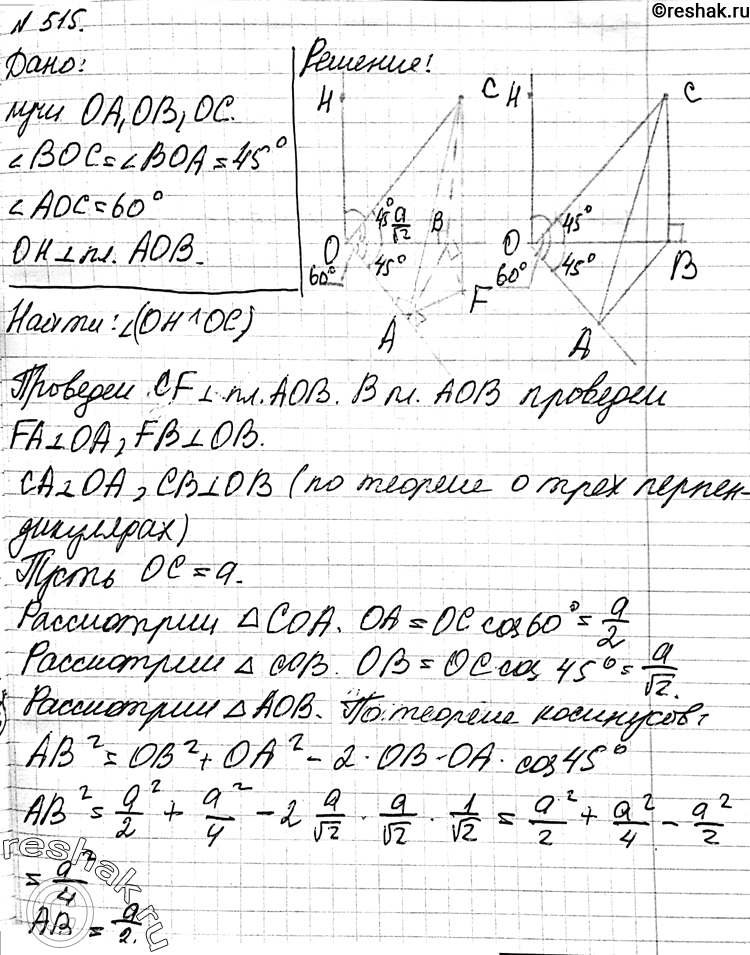 ©reshak.ru
N 515.
Дано:
лучи OA, OB, OC.
∠BOC=∠BOA=45°
∠AOC=60°
OH⊥пл. AOB.
Найти: ∠(OH^OC)
Решение:
H C H C
45° a/√2 B 45°
O 45° O 45°
60° 60° B
F
A A
Проведем CF⊥пл. AOB. В пл. AOB проведем
FA⊥OA, FB⊥OB.
CA⊥OA, CB⊥OB (по теореме о трех перпен-
дикулярах)
Пусть OC=a.
Рассмотрим △COA. OA=OC cos60°=a/2
Рассмотрим △COB. OB=OC cos 45°=a/√2.
Рассмотрим △AOB. По теореме косинусов:
AB²=OB²+OA²-2·OB·OA·cos45°
AB²=a²/2+a²/4-2 a/√2·a/√2·1/√2=a²/2+a²/4-a²/2
=a²/4
AB=a/2.
reshak.ru